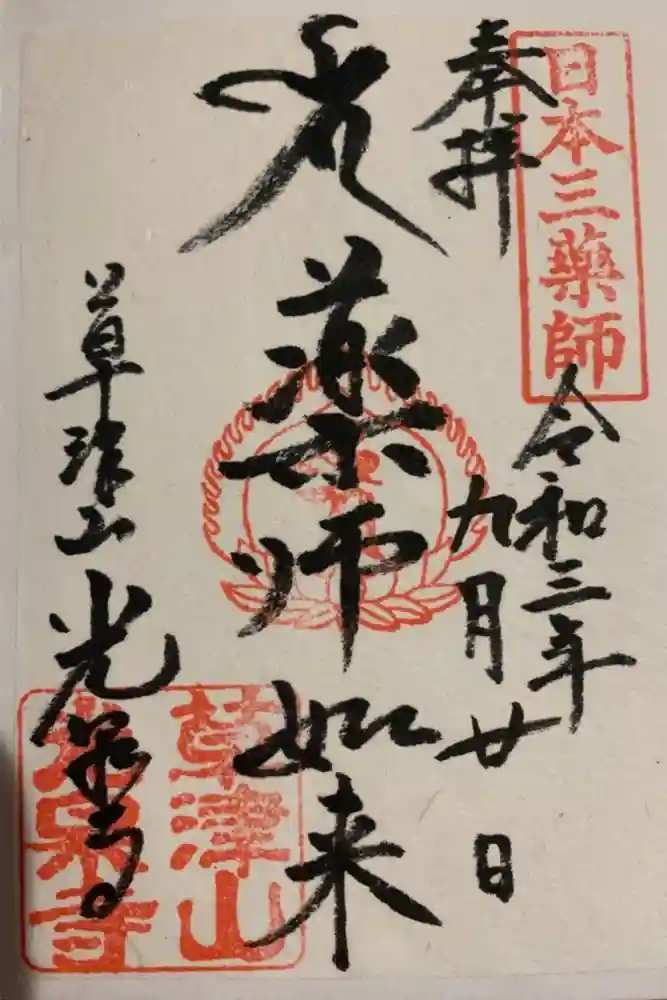 日本三薬師
奉拝
令和三年
九月廿日
薬師如来
草津山
光泉寺
草津山
光泉寺